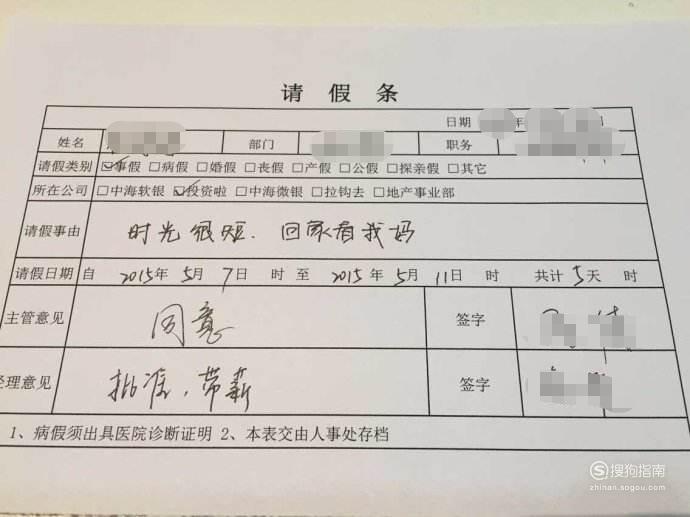 请假条
日期 年
姓名 部门 职务
请假类别 ☑事假 □病假 □婚假 □丧假 □产假 □公假 □探亲假 □其它
所在公司 □中海软银 ☑投资啦 □中海微银 □拉钩去 □地产事业部
请假事由 时光很短.回家看我妈
请假日期 自 2015年 5月 7日 时 至 2015年 5月 11日 时 共计 5天 时
主管意见 同意 签字
经理意见 批准,带薪 签字
1、病假须出具医院诊断证明 2、本表交由人事处存档
S 搜狗指南
zhinan.sogou.com